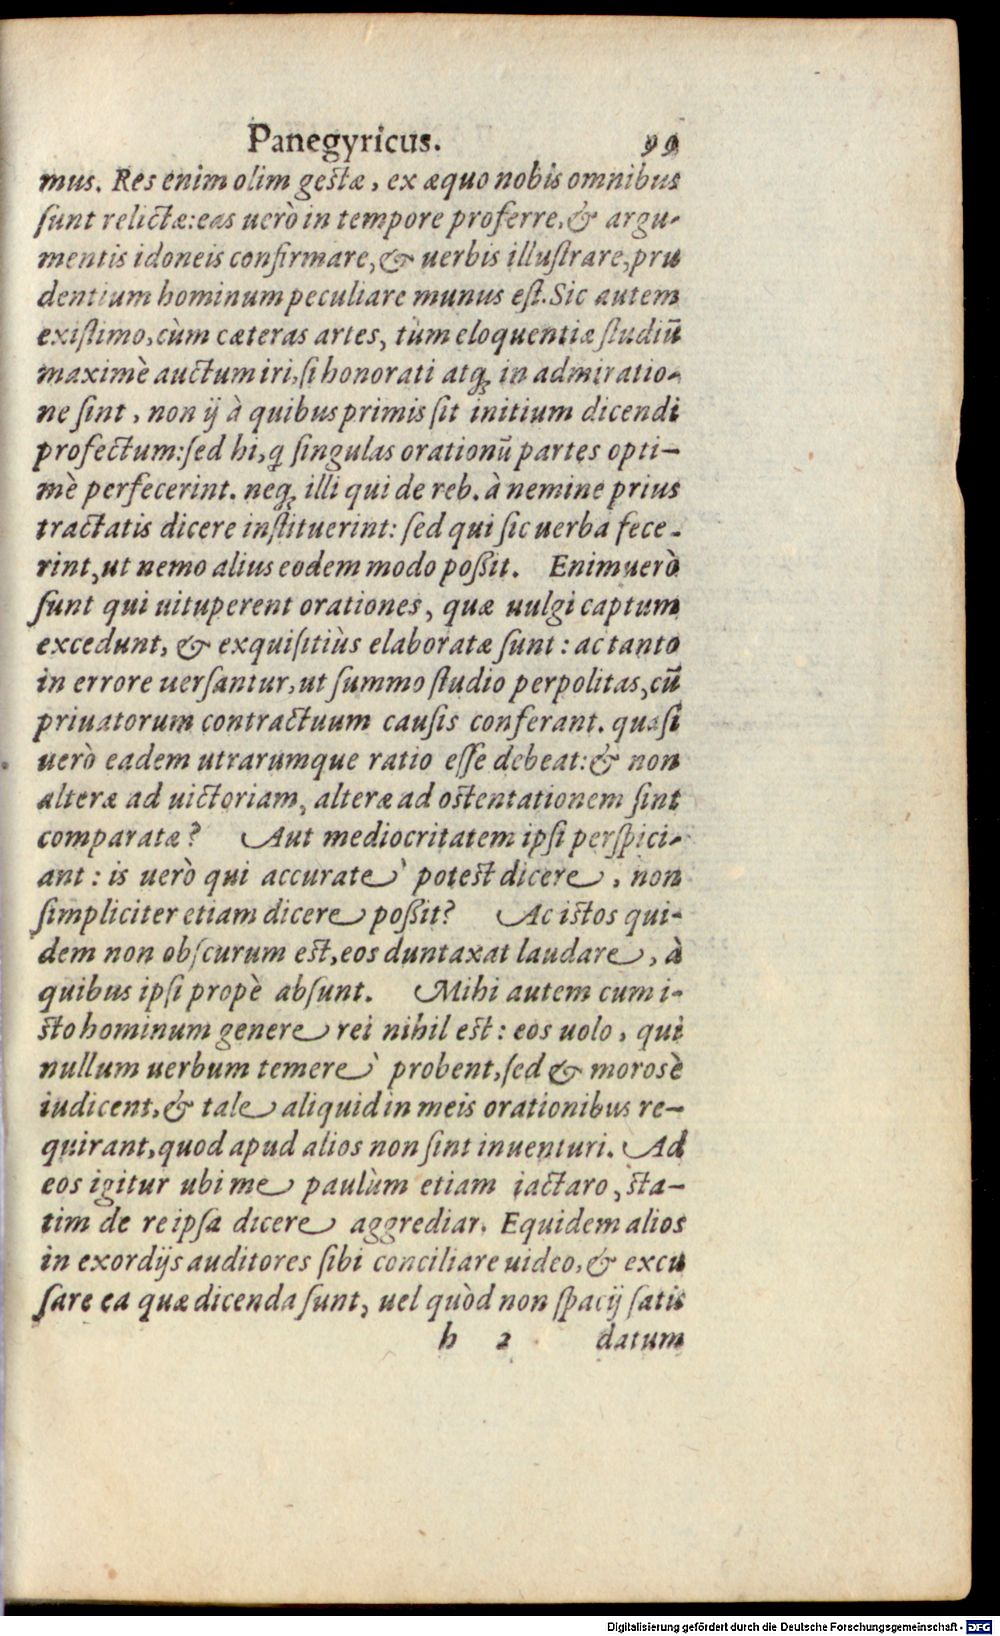 Panegyricus. 99
mus. Res enim olim gestæ, ex æquo nobis omnibus
sunt relictæ: eas uerò in tempore proferre, & argu-
mentis idoneis confirmare, & uerbis illustrare, pru
dentium hominum peculiare munus est. Sic autem
existimo, cùm cæteras artes, tùm eloquentiæ studiũ
maximè auctum iri, si honorati atq; in admiratio-
ne sint, non ij à quibus primis sit initium dicendi
profectum: sed hi, q̃ singulas orationũ partes opti-
mè perfecerint. neq; illi qui de reb. à nemine prius
tractatis dicere instituerint: sed qui sic uerba fece-
rint, ut nemo alius eodem modo possit. Enimuerò
sunt qui uituperent orationes, quæ uulgi captum
excedunt, & exquisitiùs elaboratæ sunt: ac tanto
in errore uersantur, ut summo studio perpolitas, cũ
priuatorum contractuum causis conferant. quasi
uerò eadem utrarumque ratio esse debeat: & non
alteræ ad uictoriam, alteræ ad ostentationem sint
comparatæ? Aut mediocritatem ipsi perspici-
ant: is uerò qui accuratè potest dicere, non
simpliciter etiam dicere possit? Ac istos qui-
dem non obscurum est, eos duntaxat laudare, à
quibus ipsi propè absunt. Mihi autem cum i-
sto hominum genere rei nihil est: eos uolo, qui
nullum uerbum temerè probent, sed & morosè
iudicent, & tale aliquid in meis orationibus re-
quirant, quod apud alios non sint inuenturi. Ad
eos igitur ubi me paulùm etiam iactaro, sta-
tim de re ipsa dicere aggrediar. Equidem alios
in exordijs auditores sibi conciliare uideo, & excu
sare ea quæ dicenda sunt, uel quòd non spacij satis
h 2 datum
Digitalisierung gefördert durch die Deutsche Forschungsgemeinschaft - DFG